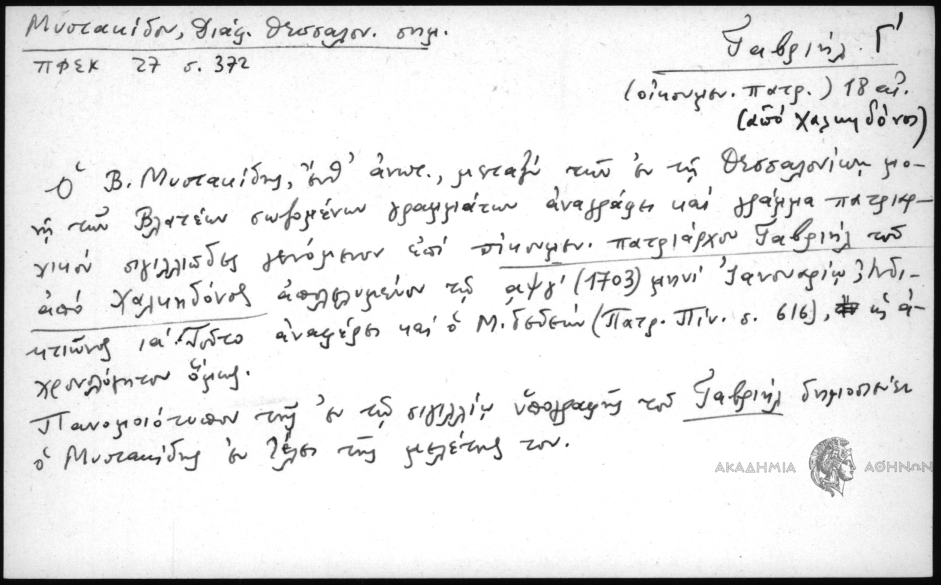 Μυστακίδου, Διάφ. Θεσσαλον. σημ.
ΠΦΣΚ 27 σ. 372
Γαβριήλ Γ'
(οἰκουμεν. πατρ.) 18 αἰ.
(ἀπό Χαλκηδόνος)
Ὁ Β. Μυστακίδης, ἔνθ' ἀνωτ., μεταξύ τῶν ἐν τῇ Θεσσαλονίκῃ μο-
νῇ τῶν Βλατέων σωζομένων γραμμάτων ἀναγράφει καί γράμμα πατριαρ-
χικόν σιγιλλιῶδες γενόμενον ἐπί οἰκουμεν. πατριάρχου Γαβριήλ τοῦ
ἀπό Χαλκηδόνος ἀπολελυμένον τῷ ͵αψγ' (1703) μηνί Ἰανουαρίῳ Ἰνδι-
κτιῶνος ια'. Τοῦτο ἀναφέρει καί ὁ Μ. Γεδεών (Πατρ. Πίν. σ. 616), ὡς ἀ-
χρονολόγητον ὅμως.
Πανομοιότυπον τῆς ἐν τῷ σιγιλλίῳ ὑπογραφῆς τοῦ Γαβριήλ δημοσιεύει
ὁ Μυστακίδης ἐν τέλει τῆς μελέτης του.
ΑΚΑΔΗΜΙΑ ΑΘΗΝΩΝ